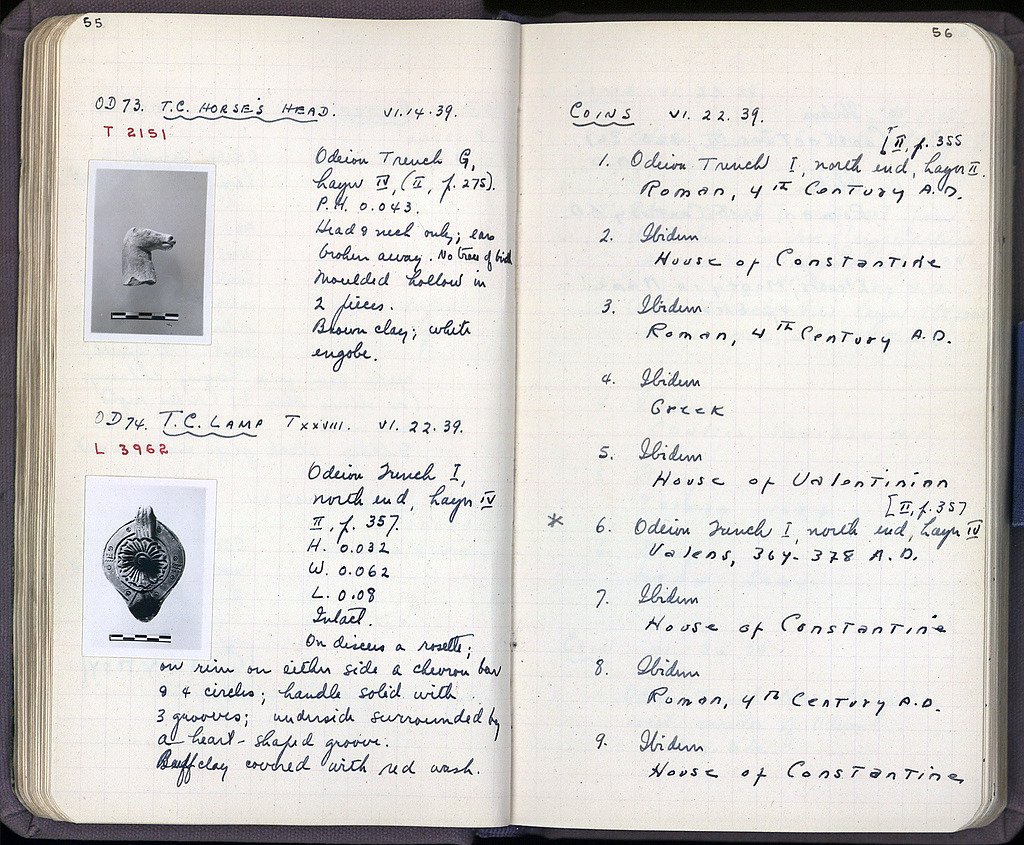 55
OD 73. T.C. HORSE'S HEAD. VI.14.39.
T 2151
Odeion Trench G,
Layer IV, (II, p. 275).
P.H. 0.043.
Head & neck only; ears
broken away. No trace of bridle
Moulded hollow in
2 pieces.
Brown clay; white
engobe.
OD 74. T.C. LAMP T XXVIII. VI. 22. 39.
L 3962
Odeion Trench I,
north end, Layer IV
II, p. 357.
H. 0.032
W. 0.062
L. 0.08
Intact.
On discus a rosette;
on rim on either side a chevron bar
& 4 circles; handle solid with
3 grooves; underside surrounded by
a heart-shaped groove.
Buff clay covered with red wash.
56
COINS VI. 22. 39.
[II, p. 355
1. Odeion Trench I, north end, Layer II.
Roman, 4th Century A.D.
2. Ibidem
House of Constantine
3. Ibidem
Roman, 4TH Century A.D.
4. Ibidem
Greek
5. Ibidem
House of Valentinian
[II, p. 357
* 6. Odeion Trench I, north end, Layer IV
Valens, 364-378 A.D.
7. Ibidem
House of Constantine
8. Ibidem
Roman, 4TH Century A.D.
9. Ibidem
House of Constantine